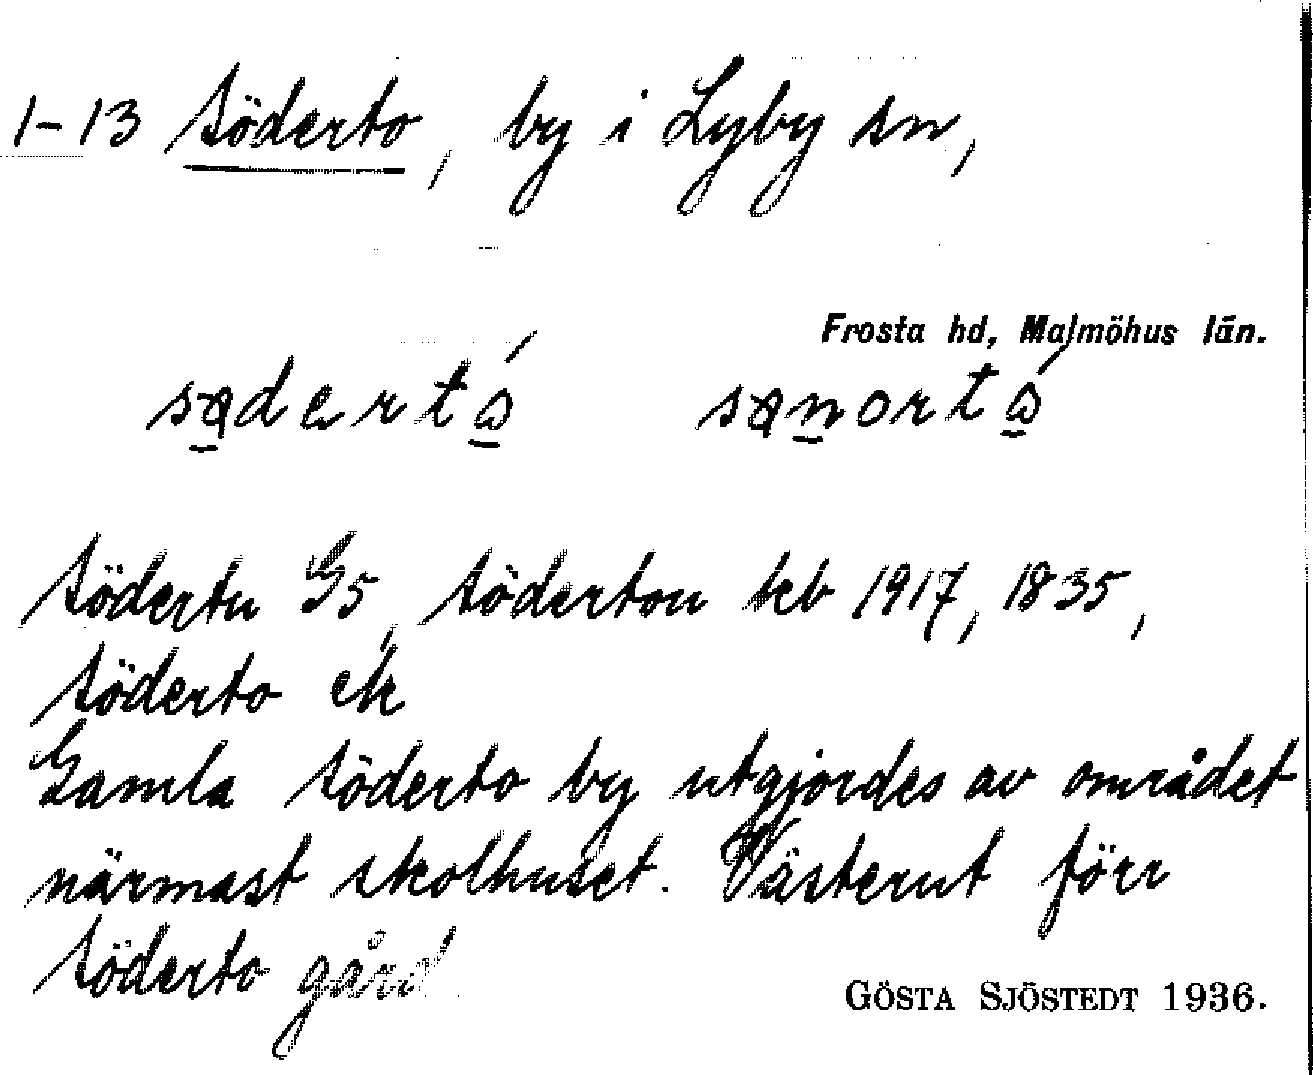 1-13 Söderto, by i Lyby sn,
Frosta hd, Malmöhus län.
Södertu G5, Söderton kb 1917, 1835,
Söderto ek
Gamla Söderto by utgjordes av området
närmast skolhuset. Västerut förr
Söderto gård
GÖSTA SJÖSTEDT 1936.